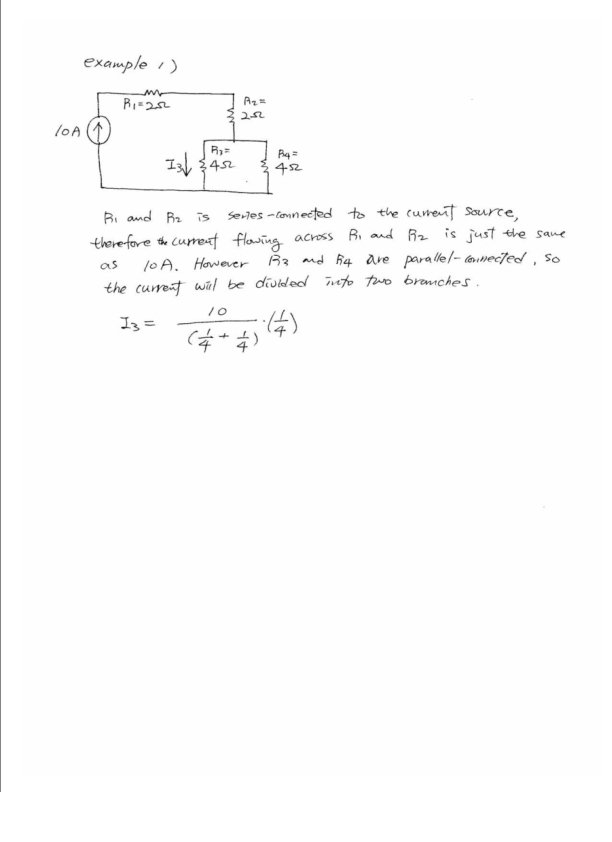 example 1)
R1=2Ω
R2=
2Ω
10A
I3
R3=
4Ω
R4=
4Ω
R1 and R2 is series-connected to the current source,
therefore the current flowing across R1 and R2 is just the same
as 10A. However R3 and R4 are parallel-connected, so
the current will be divided into two branches.
I3 = 10 / (1/4 + 1/4) · (1/4)